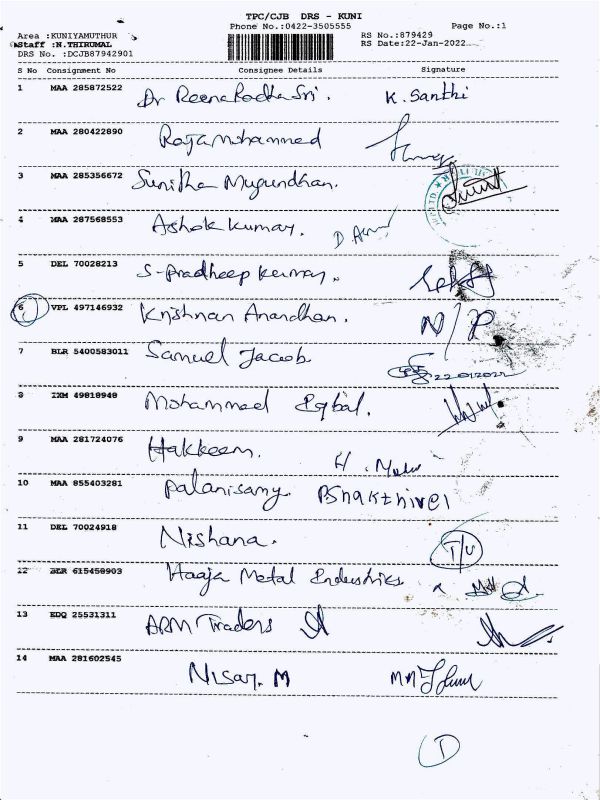 TPC/CJB DRS - KUNI
Phone No.:0422-3505555 Page No.:1
Area :KUNIYAMUTHUR RS No.:879429
Staff :N.THIRUMAL RS Date:22-Jan-2022
DRS No. :DCJB87942901
S No Consignment No Consignee Details Signature
1 MAA 285872522 Dr ReenaRadhaSri. K. Santhi
2 MAA 280422890 Raja Mohammed
3 MAA 285356672 Sunitha Mugundhan.
4 MAA 287568553 Ashok Kumar.
5 DEL 70028213 S-Pradheep Kumar.
6 VPL 497146932 Krishnan Anandhan. N/P
7 BLR 5400583011 Samuel Jacob
8 IXM 49818948 Mohammed Eqbal.
9 MAA 281724076 Hakkeem. H.
10 MAA 855403281 Palanisamy. P.Shakthivel
11 DEL 70024918 Nishana. T/U
12 BLR 615458903 Haaja Metal Industries
13 EDQ 25531311 ARM Traders
14 MAA 281602545 Nisar. M